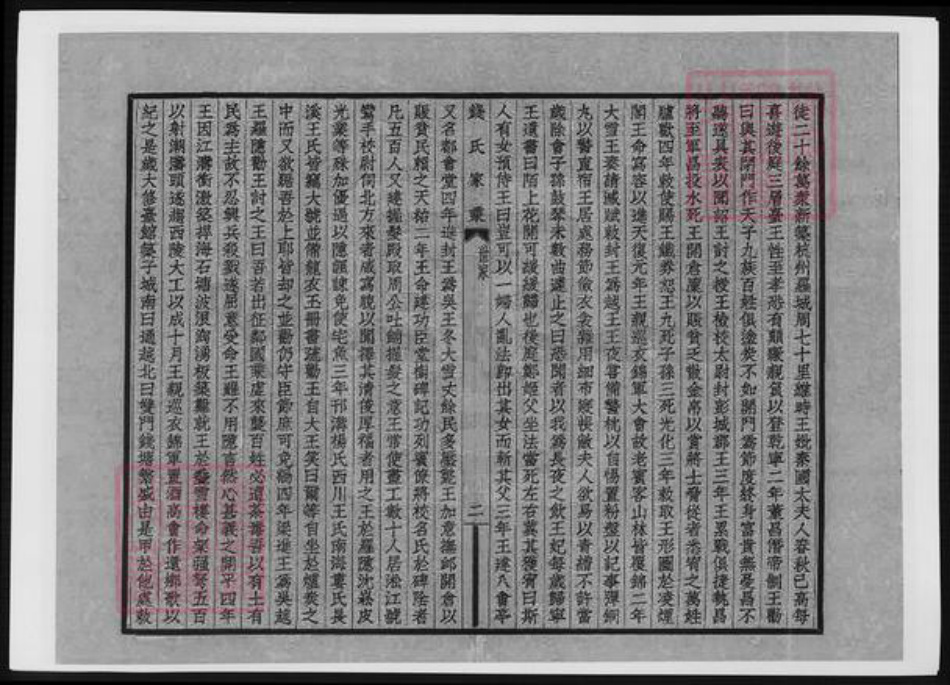 徒二十餘萬衆新築杭州羅城周七十里雄時王妣秦國太夫人春秋已高每
喜遊後庭三層臺王性至孝階有顛隮親負以登乾寧二年董昌僭帝制王勸
曰與其閉門作天子九族百姓俱塗炭不如開門為節度終身富貴無憂昌不
聽遂具表以聞詔王討之授王檢校太尉封彭城郡王三年王累戰俱捷執昌
將至軍昌投水死王開倉廩以賑貧乏散金帛以賞將士脅從者悉宥之萬姓
臚歡四年敕使賜王鐵券恕王九死子孫三死光化三年敕取王形圖於凌煙
閣王命寫容以進天復元年王親巡衣錦軍大會故老賓客山林皆覆錦二年
大雪王奏請減賦敕封王為越王王夜寢備警枕以自惕置粉盤以記事彈銅
丸以警直宿王居處務節儉衣衾雜用細布寢帳敝夫人欲易以青繒不許當
歲除會子孫鼓琴未數曲遽止之曰恐聞者以我為長夜之飲王妃每歲歸寧
王遺書曰陌上花開可緩緩歸也後庭鄭姬父坐法當死左右冀其獲宥曰斯
人有女預侍王曰豈可以一婦人亂法節出其女而斬其父三年王建八會亭
錢氏家乘 世家 二
又名都會堂四年進封王為吳王冬大雪丈餘民多饑斃王加意撫卹開倉以
賑貧民賴之天祐二年王命建功臣堂樹碑記功列賓僚將校名氏於碑陰者
凡五百人又建握髮殿取周公吐餔握髮之意王常使畫工數十人居淞江號
鸞手校尉伺北方來者咸寫貌以聞擇其清俊厚福者用之王於羅隱沈崧皮
光業等殊加優遇以隱諷諫免使宅魚三年邗溝楊氏西川王氏南海劉氏長
溪王氏皆竊大號並備龍衣玉冊書疏勸王自大王笑曰爾等自坐於爐炭之
中而又欲踞吾於上耶皆却之並勸仍守臣節庶可免禍四年梁進王為吳越
王羅隱勸王討之王曰吾若出征鄰國乘虛來襲百姓必遭荼毒吾以有土有
民為主故不忍興兵殺戮遂屈意受命王雖不用隱言然心甚義之開平四年
王因江濤衝激築捍海石塘波浪洶湧板築難就王於疊雪樓命架強弩五百
以射潮濤頭遂趨西陵大工以成十月王親巡衣錦軍置酒高會作還鄉歌以
紀之是歲大修臺館築子城南曰通越北曰雙門錢塘繁盛由是甲於他處敕